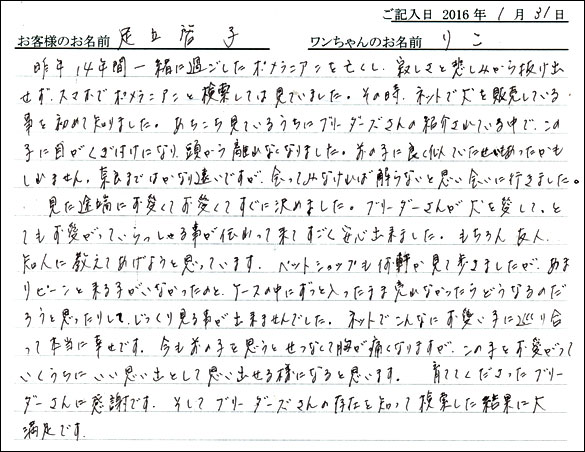 ご記入日 2016 年 1 月 31 日
お客様のお名前 足立 子 ワンちゃんのお名前 りこ
昨年、14年間一緒に過ごしたポメラニアンを亡くし、寂しさと悲しみから抜け出
せず、スマホでポメラニアンと検索しては見ていました。その時、ネットで犬を販売している
事を初めて知りました。あちこち見ているうちにブリーダーズさんの紹介されている中で、この
子に目がくぎ付けになり、頭から離れなくなりました。前の子に良く似ていたせいもあったかも
しれません。奈良まではかなり遠いですが、会ってみなければ解らないと思い会いに行きました。
見た途端にお愛くてお愛くてすぐに決めました。ブリーダーさんが犬を愛して、と
てもお愛がっていらっしゃる事が伝わって来てすごく安心出来ました。もちろん友人、
知人に教えてあげようと思っています。ペットショップも何軒か見て歩きましたが、あま
りピーンと来る子がいなかったのと、ケースの中にずっと入ったまま売れなかったらどうなるのだ
ろうと思ったりして、じっくり見る事が出来ませんでした。ネットでこんなにお愛い子に巡り合
って本当に幸せです。今も前の子を思うとせつなくて胸が痛くなりますが、この子をお愛がって
いくうちに、いい思い出として思い出せる様になると思います。 育ててくださったブリー
ダーさんに感謝です。そしてブリーダーズさんの存在を知って検索した結果に大
満足です。